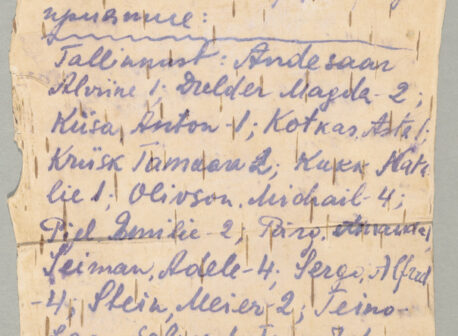 Tallinnast: Andesaar
Alviine 1; Dulder Magda-2;
Kiisa, Anton-1; Kotkas, Asta 1;
Kriisk Tamaara 2; Kukk Nata-
lie 1; Olivson, Michail-4;
Piel Emilie-2; Piiro,
Seiman, Adele-4; Sergo, Alfred
-4; Stein, Meier-2; Teino-